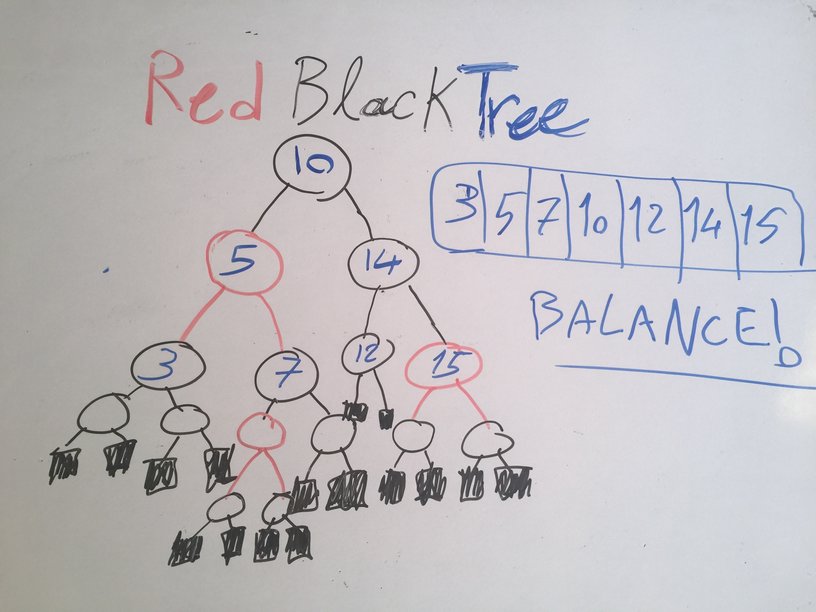 Red Black Tree
10
5 14
3 7 12 15
3 5 7 10 12 14 15
BALANCE!